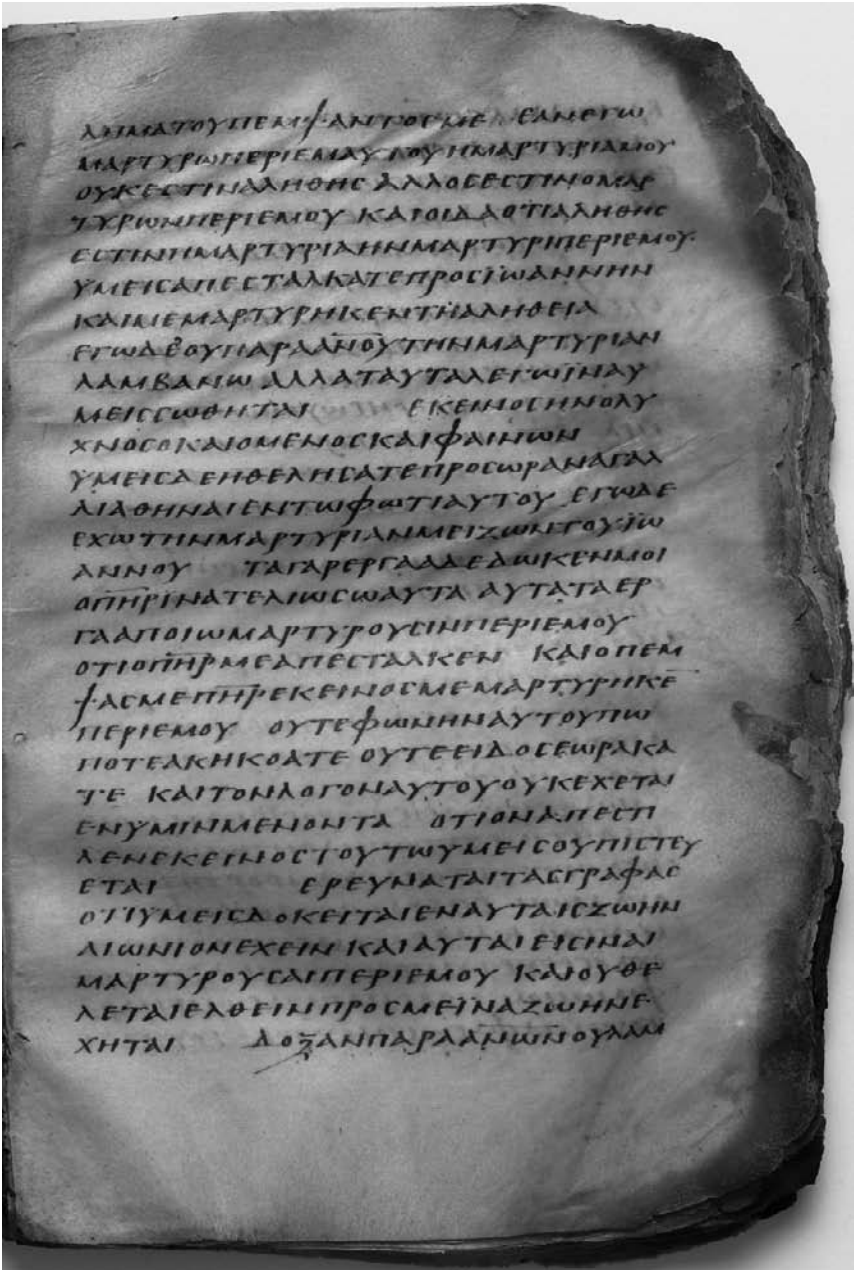 ΛΗΜΑΤΟΥΠΕΜΨΑΝΤΟΣΜΕ ΕΑΝΕΓΩ
ΜΑΡΤΥΡΩΠΕΡΙΕΜΑΥΤΟΥΗΜΑΡΤΥΡΙΑΜΟΥ
ΟΥΚΕΣΤΙΝΑΛΗΘΗΣ ΑΛΛΟΣΕΣΤΙΝΟΜΑΡ
ΤΥΡΩΝΠΕΡΙΕΜΟΥ ΚΑΙΟΙΔΑΟΤΙΑΛΗΘΗΣ
ΕΣΤΙΝΗΜΑΡΤΥΡΙΑΗΝΜΑΡΤΥΡΙΠΕΡΙΕΜΟΥ·
ΥΜΕΙΣΑΠΕΣΤΑΛΚΑΤΕΠΡΟΣΪΩΑΝΝΗΝ
ΚΑΙΜΕΜΑΡΤΥΡΗΚΕΝΤΗΑΛΗΘΕΙΑ
ΕΓΩΔΕΟΥΠΑΡΑΑ̅Ν̅Ο̅Υ̅ΤΗΝΜΑΡΤΥΡΙΑΝ
ΛΑΜΒΑΝΩ ΑΛΛΑΤΑΥΤΑΛΕΓΩΪΝΑΥ
ΜΕΙΣΣΩΘΗΤΑΙ ΕΚΕΙΝΟΣΗΝΟΛΥ
ΧΝΟΣΟΚΑΙΟΜΕΝΟΣΚΑΙΦΑΙΝΩΝ
ΥΜΕΙΣΔΕΗΘΕΛΗΣΑΤΕΠΡΟΣΩΡΑΝΑΓΑΛ
ΛΙΑΘΗΝΑΙΕΝΤΩΦΩΤΙΑΥΤΟΥ ΕΓΩΔΕ
ΕΧΩΤΗΝΜΑΡΤΥΡΙΑΝΜΕΙΖΩΝΤΟΥΪΩ
ΑΝΝΟΥ ΤΑΓΑΡΕΡΓΑΑΔΕΔΩΚΕΝΜΟΙ
ΟΠ̅Η̅Ρ̅ΙΝΑΤΕΛΙΩΣΩΑΥΤΑ ΑΥΤΑΤΑΕΡ
ΓΑΑΠΟΙΩΜΑΡΤΥΡΟΥΣΙΝΠΕΡΙΕΜΟΥ
ΟΤΙΟΠ̅Η̅Ρ̅ΜΕΑΠΕΣΤΑΛΚΕΝ ΚΑΙΟΠΕΜ
ΨΑΣΜΕΠ̅Η̅Ρ̅ΕΚΕΙΝΟΣΜΕΜΑΡΤΥΡΗΚΕ̅
ΠΕΡΙΕΜΟΥ ΟΥΤΕΦΩΝΗΝΑΥΤΟΥΠΩ
ΠΟΤΕΑΚΗΚΟΑΤΕ ΟΥΤΕΕΙΔΟΣΕΩΡΑΚΑ
ΤΕ ΚΑΙΤΟΝΛΟΓΟΝΑΥΤΟΥΟΥΚΕΧΕΤΑΙ
ΕΝΥΜΙΝΜΕΝΟΝΤΑ ΟΤΙΟΝΑΠΕΣΤΙ
ΛΕΝΕΚΕΙΝΟΣΤΟΥΤΩΥΜΕΙΣΟΥΠΙΣΤΕΥ
ΕΤΑΙ ΕΡΕΥΝΑΤΑΙΤΑΣΓΡΑΦΑΣ
ΟΤΙΥΜΕΙΣΔΟΚΕΙΤΑΙΕΝΑΥΤΑΙΣΖΩΗΝ
ΑΙΩΝΙΟΝΕΧΕΙΝ ΚΑΙΑΥΤΑΙΕΙΣΙΝΑΙ
ΜΑΡΤΥΡΟΥΣΑΙΠΕΡΙΕΜΟΥ ΚΑΙΟΥΘΕ
ΛΕΤΑΙΕΛΘΕΙΝΠΡΟΣΜΕΪΝΑΖΩΗΝΕ
ΧΗΤΑΙ ΔΟΞΑΝΠΑΡΑΑ̅Ν̅Ω̅Ν̅ΟΥΛΑΜ